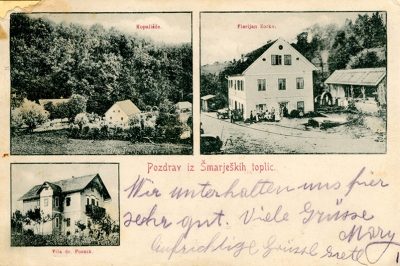 Kopališče.
Florijan Zorko.
Pozdrav iz Šmarješkich toplic.
Wir unterhalten uns hier
sehr gut. Viele Grüsse
Mary
Aufrichtige Grüsse Grete
Vila dr.